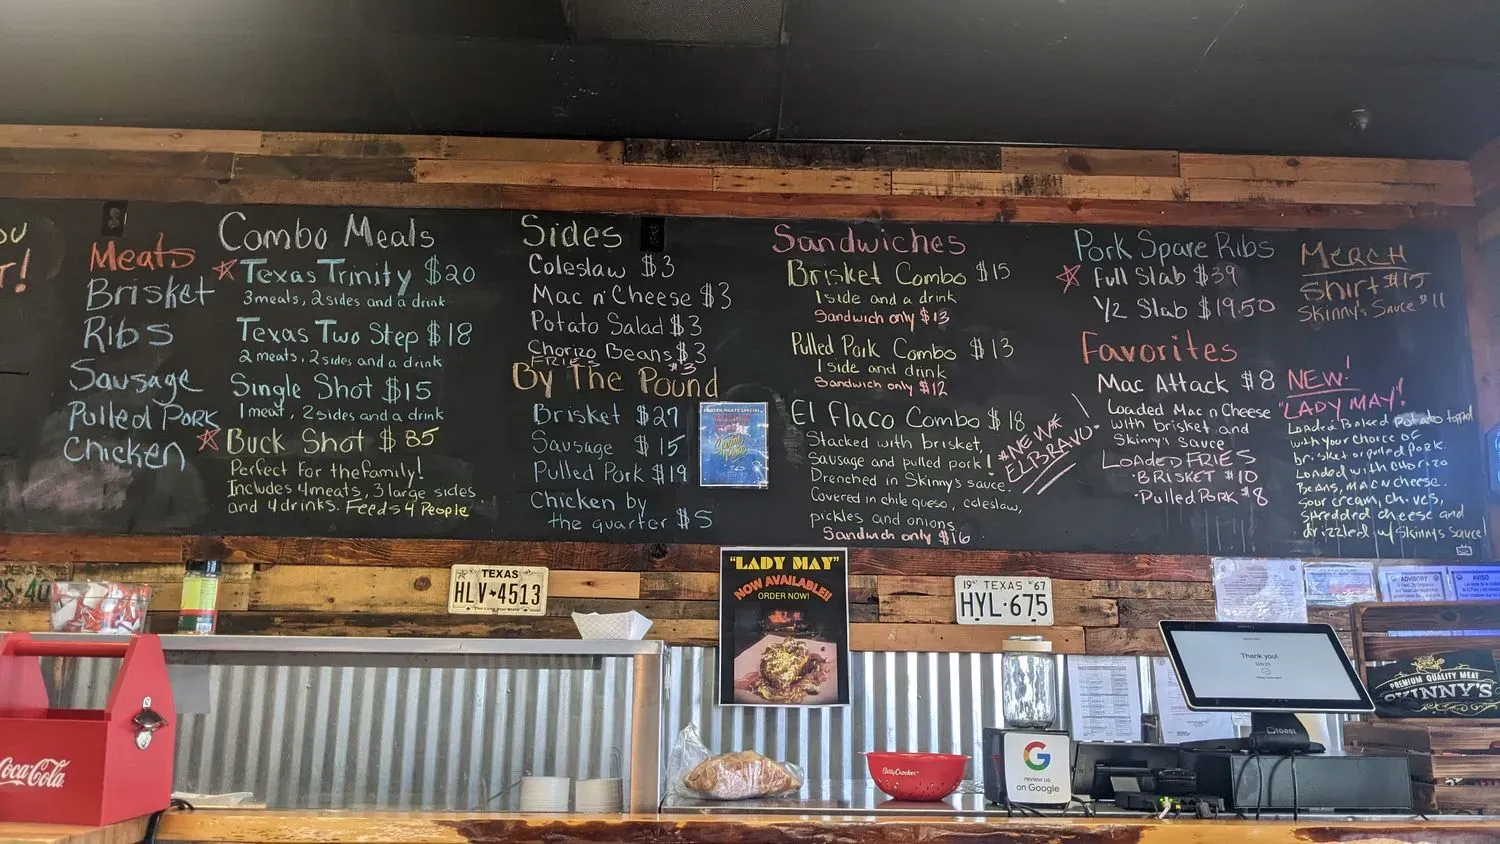 OU
T!
Meats
Brisket
Ribs
Sausage
Pulled Pork
Chicken
Combo Meals
Texas Trinity $20
3 meats, 2 sides and a drink
Texas Two Step $18
2 meats, 2 sides and a drink
Single Shot $15
1 meat, 2 sides and a drink
Buck Shot $85
Perfect for the family!
Includes 4 meats, 3 large sides
and 4 drinks. Feeds 4 People
Sides
Coleslaw $3
Mac n' Cheese $3
Potato Salad $3
Chorizo Beans $3
FRIES $3
By The Pound
Brisket $27
Sausage $15
Pulled Pork $19
Chicken by
the quarter $5
FROZEN MEATS SPECIAL
Sandwiches
Brisket Combo $15
1 side and a drink
Sandwich only $13
Pulled Pork Combo $13
1 side and drink
Sandwich only $12
El Flaco Combo $18
Stacked with brisket,
Sausage and pulled pork!
Drenched in Skinny's sauce.
Covered in chile queso, coleslaw,
pickles and onions
Sandwich only $16
*NEW*
ELIBRAVO
Pork Spare Ribs
Full Slab $39
1/2 Slab $19.50
Favorites
Mac Attack $8
Loaded Mac n Cheese
with brisket and
Skinny's sauce
LOADED FRIES
·BRISKET $10
·Pulled Pork $8
MERCH
Shirt $15
Skinny's Sauce $11
NEW!
"LADY MAY"!
Loaded Baked Potato topped
with your choice of
brisket or pulled pork.
Loaded with chorizo
Beans, mac n cheese,
sour cream, chives,
shredded cheese and
drizzled w/ Skinny's sauce!
TEXAS
HLV 4513
"LADY MAY"
NOW AVAILABLE!!
ORDER NOW!
19 TEXAS 67
HYL·675
ADVISORY
AVISO
Thank you!
toast
PREMIUM QUALITY MEAT
SKINNY'S
Coca-Cola
Betty Crocker
G
review us
on Google